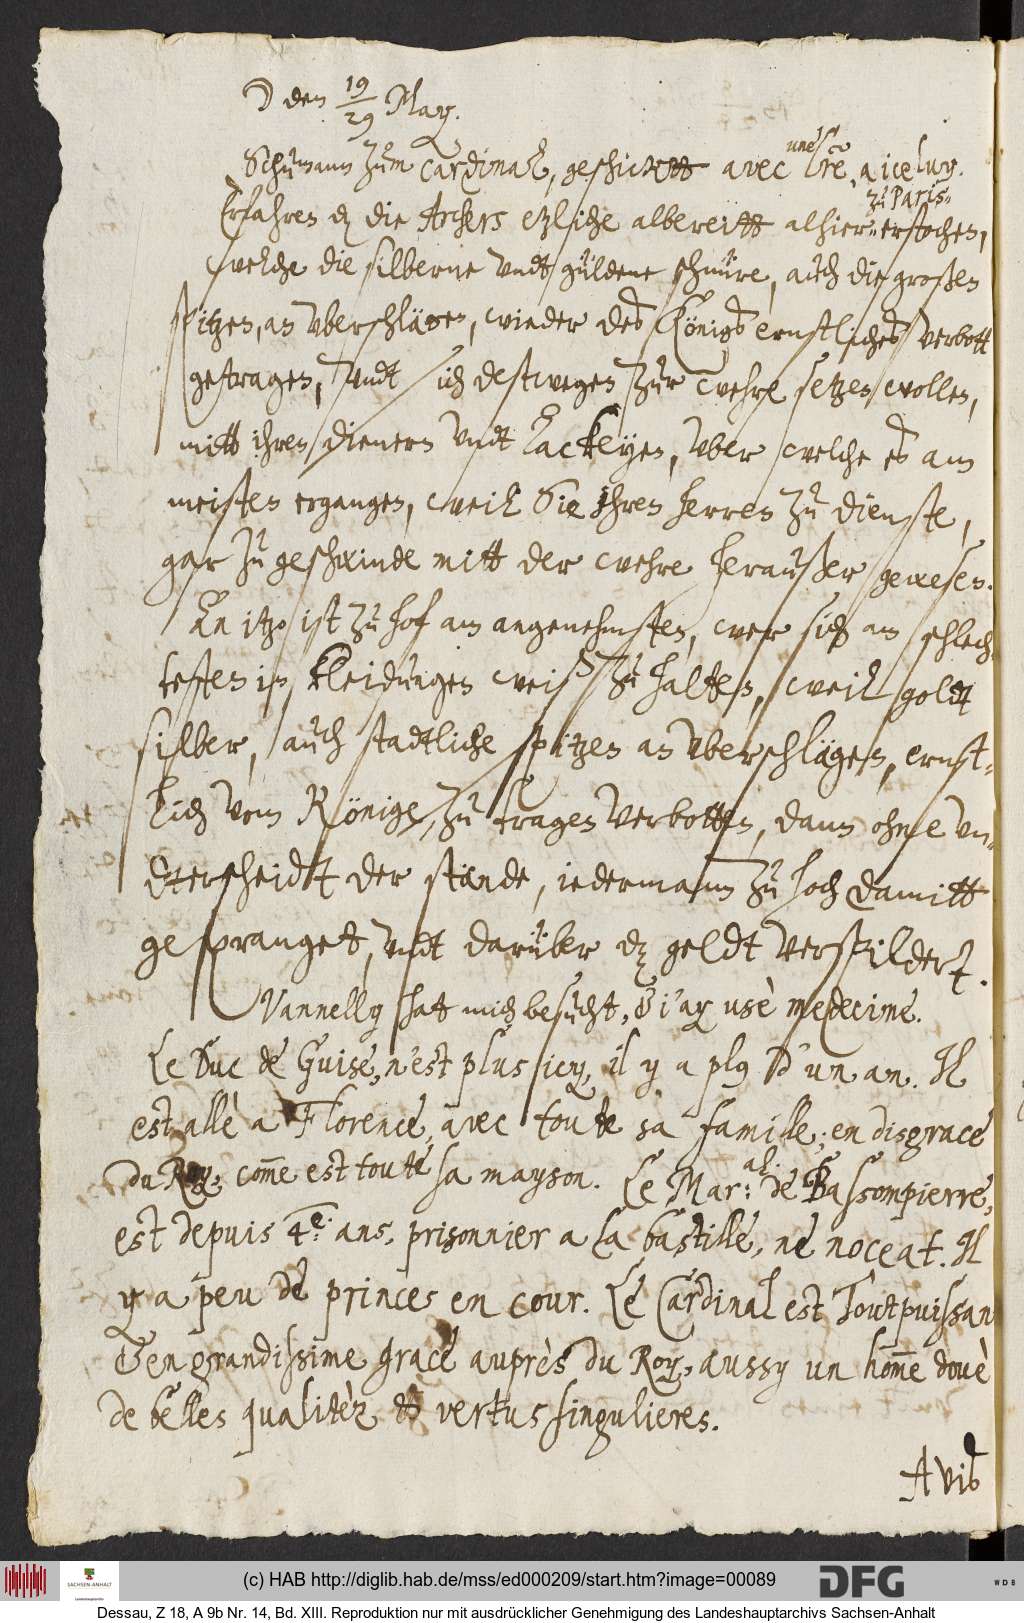 ☽ den 19/29 May.
Schumann zum Cardinal, geschicktt avec une lr̄e, a iceluy.
zu Paris
Erfahren dz die Archers etzliche albereitt alhier erstochen,
welche die silberne undt güldene schnüre, auch die großen
spitzen, an uberschlägen, wieder des Königs ernstliches verbott
getragen, undt sich destwegen zur wehre setzen wollen,
mitt ihren dienern undt Lackeyen, uber welche es am
meisten ergangen, weil Sie ihren herren zu dienste,
gar zu geschwinde mitt der wehre heraußer gewesen.
An itzo ist zu hof am angenehmsten, wer sich am schlech-
testen in kleidungen weiß zu halten, weil goldt
silber, auch stadtliche spitzen an uberschlägen, ernst-
lich vom Könige, zu tragen verbotten, dann ohne un-
dterscheidt der stände, iedermann zu hoch damitt
gepranget, undt darüber dz geldt verspildert.
Vannelly hatt mich besucht, & i'ay usè medecine.
Le Duc de Guise, n'est plus icy, il y a plus d'un an. Il
est allè a Florence, avec toute sa famille, en disgrace
du Roy, com̄e est toute sa mayson. Le Mar:al. de Bassompierre,
est depuis 4e. ans, prisonnier a la bastille, ne noceat. Il
y a peu de princes en cour. Le Cardinal est Toutpuissan
& en grandissime grace auprès du Roy, aussy un hom̄e douè
de belles qualitèz & vertus singulieres.
Avis
(c) HAB http://diglib.hab.de/mss/ed000209/start.htm?image=00089
SACHSEN-ANHALT
DFG
WDB
Dessau, Z 18, A 9b Nr. 14, Bd. XIII. Reproduktion nur mit ausdrücklicher Genehmigung des Landeshauptarchivs Sachsen-Anhalt